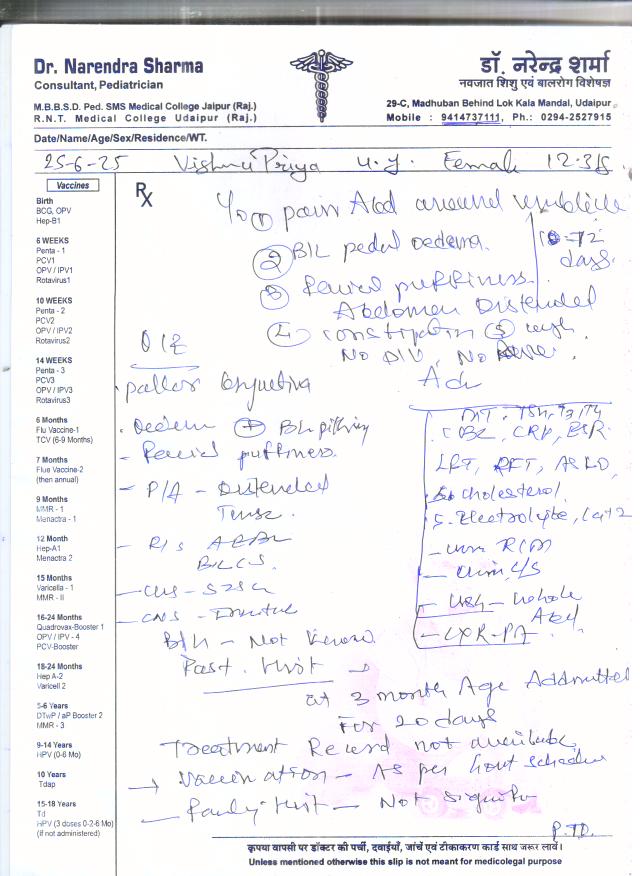 Dr. Narendra Sharma
Consultant, Pediatrician
M.B.B.S D. Ped. SMS Medical College Jaipur (Raj.)
R.N.T. Medical College Udaipur (Raj.)
डॉ. नरेन्द्र शर्मा
नवजात शिशु एवं बालरोग विशेषज्ञ
29-C, Madhuban Behind Lok Kala Mandal, Udaipur
Mobile : 9414737111, Ph.: 0294-2527915
Date/Name/Age/Sex/Residence/WT.
25-6-25 Vishnu Priya 4.y. Female 12.315
Vaccines
Birth
BCG, OPV
Hep-B1
6 WEEKS
Penta - 1
PCV1
OPV / IPV1
Rotavirus1
10 WEEKS
Penta - 2
PCV2
OPV / IPV2
Rotavirus2
14 WEEKS
Penta - 3
PCV3
OPV / IPV3
Rotavirus3
6 Months
Flu Vaccine-1
TCV (6-9 Months)
7 Months
Flue Vaccine-2
(then annual)
9 Months
MMR - 1
Menactra - 1
12 Month
Hep-A1
Menactra 2
15 Months
Varicella - 1
MMR - II
16-24 Months
Quadrovax-Booster 1
OPV / IPV - 4
PCV-Booster
18-24 Months
Hep A-2
Varicell 2
5-6 Years
DTwP / aP Booster 2
MMR - 3
9-14 Years
HPV (0-6 Mo)
10 Years
Tdap
15-18 Years
Td
HPV (3 doses 0-2-6 Mo)
(if not administered)
Rx
① pain Abd around umblicus
② B/L pedal oedema
10-12 days
③ Facial puffiness
Abdomen Distended
④ constipation cough
No
O/E
pallor Conjuctiva
Adv
Oedem + B/L pitting
- Facial puffiness
- P/A - Distended
Tense
- R/s
B/L CS
- CVS - S1S2
- CNS -
B/H - Not Known
CBC, CRP, ESR
LFT, RFT, ASLO
S. Cholesterol
S. Electrolyte, Ca+2
- Urine R/M
- Urine C/S
- USG - whole Abd
- CXR-PA
Past Hist →
at 3 month Age Addmitted
For 20 days
Treatment Record not available
→ Vaccination - As per Govt schedule
- Family Hist - Not
P.T.O.
कृपया वापसी पर डॉक्टर की पर्ची, दवाईयाँ, जांचें एवं टीकाकरण कार्ड साथ जरूर लावें।
Unless mentioned otherwise this slip is not meant for medicolegal purpose